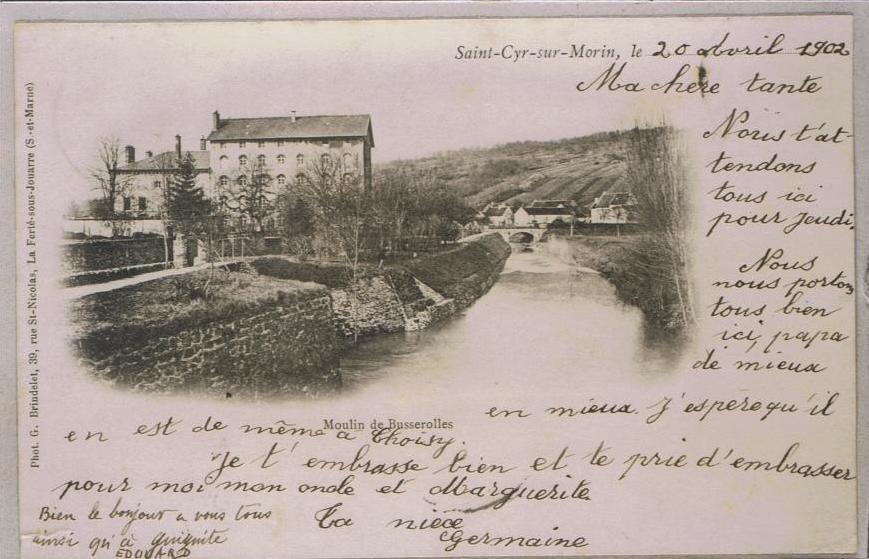 Saint-Cyr-sur-Morin, le 20 avril 1902
Ma chere tante
Nous t'at-
tendons
tous ici
pour jeudi.
Nous
nous portons
tous bien
ici, papa
de mieux
en mieux. J'espère qu'il
en est de même à Choisy.
Je t'embrasse bien et te prie d'embrasser
pour moi mon oncle et Marguerite
Ta nièce
Germaine
Bien le bonjour a vous tous
ainsi qu'à
EDOUARD
Moulin de Busserolles
Phot. G. Brindelet, 39, rue St-Nicolas, La Ferté-sous-Jouarre (S.-et-Marne)